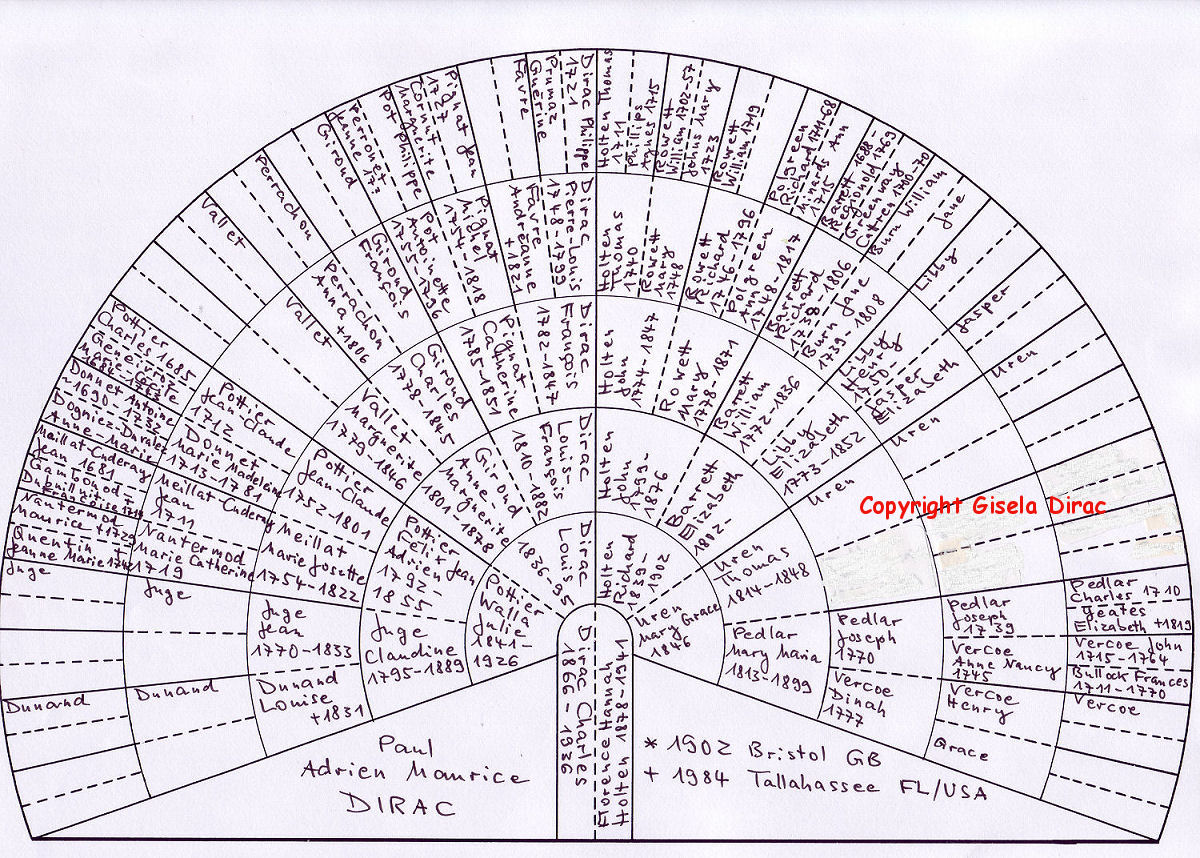 Dirac Charles
1866 - 1936
Florence Hannah
Holten 1878-1941
Paul
Adrien Maurice
DIRAC
* 1902 Bristol GB
+ 1984 Tallahassee FL/USA
Copyright Gisela Dirac
Pottier
Walla
Julie
1841-
1926
Dirac
Louis
1836-95
Holten
Richard
1839-
1902
Uren
Mary Grace
1846
Juge
Claudine
1795-1889
Pottier Jean
Felix
Adrien
1792-
1855
Girond
Anne
Marguerite
1801-1878
Dirac
Louis-
François
1810-1882
Holten
John
1799-
1876
Barrett
Elizabeth
1802-
Uren
Thomas
1814-1848
Pedlar
Mary Maria
1813-1899
Dunand
Louise
+1831
Juge
Jean
1770-1833
Meillat
Marie Josette
1754-1822
Pottier
Jean-Claude
1752-1801
Vallet
Marguerite
1779-1846
Girond
Charles
1778-1845
Pignat
Catherine
1785-1851
Dirac
François
1782-1847
Holten
John
1774-1847
Rowett
Mary
1778-1871
Barrett
William
1772-1836
Libby
Elizabeth
1773-1852
Uren
Pedlar
Joseph
1770
Vercoe
Dinah
1777
Dunand
Juge
Nantermod
Marie Catherine
1719
Meillat Cuderay
Jean
1711
Donnet
Marie Madelaine
1713-1781
Pottier
Jean-Claude
1712
Vallet
Perrachon
Anna +1806
Girond
François
Pot
Antoinette
1755-1796
Pignat
Michel
1754-1818
Favre
Andréanne
+1821
Dirac
Pierre-Louis
1748-1799
Holten
Thomas
1740
Rowett
Mary
1748
Rowett
Richard
1746-1796
Polgreen
Ann
1748-1817
Barrett
Richard
1738-1806
Burn Jane
1739-1808
Libby
Henry
1750
Jasper
Elizabeth
Uren
Pedlar
Joseph
1739
Vercoe
Anne Nancy
1745
Vercoe
Henry
Grace
Dunand
Juge
Quentin +
Jeanne Marie 1742
Nantermod
Maurice +1729
Meillat-Cuderay
Jean 1681
Donnet Antoine
~1690-1732
Anne-Marie
Pottier
Charles 1685
Vallet
Perrachon
Girond
Peronet
Jeanne
Pot Philippe
Cornut
Marguerite
Pignat Jean
1727
Favre
Prumaz
Guérine
Dirac Philippe
1721
Holten Thomas
1711
Phillips
Agnes 1715
Rowett
William 1702-57
Johns Mary
1723
Rowett
William 1719
Polgreen
Richard 1711-68
Minards Ann
1715
Barrett 1688-
Reginold 1769
Greenway
Catren 1700-70
Burn William
Jane
Libby
Jasper
Uren
Pedlar
Charles 1710
Yeates
Elizabeth +1819
Vercoe John
1715-1764
Bullock Frances
1711-1770
Vercoe